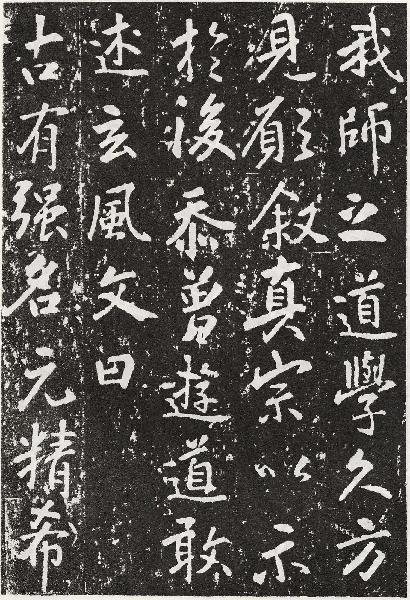 我師之道學久方
見願叙真宗以示
於後忝曾遊道敢
述玄風文曰
古有强名元精希